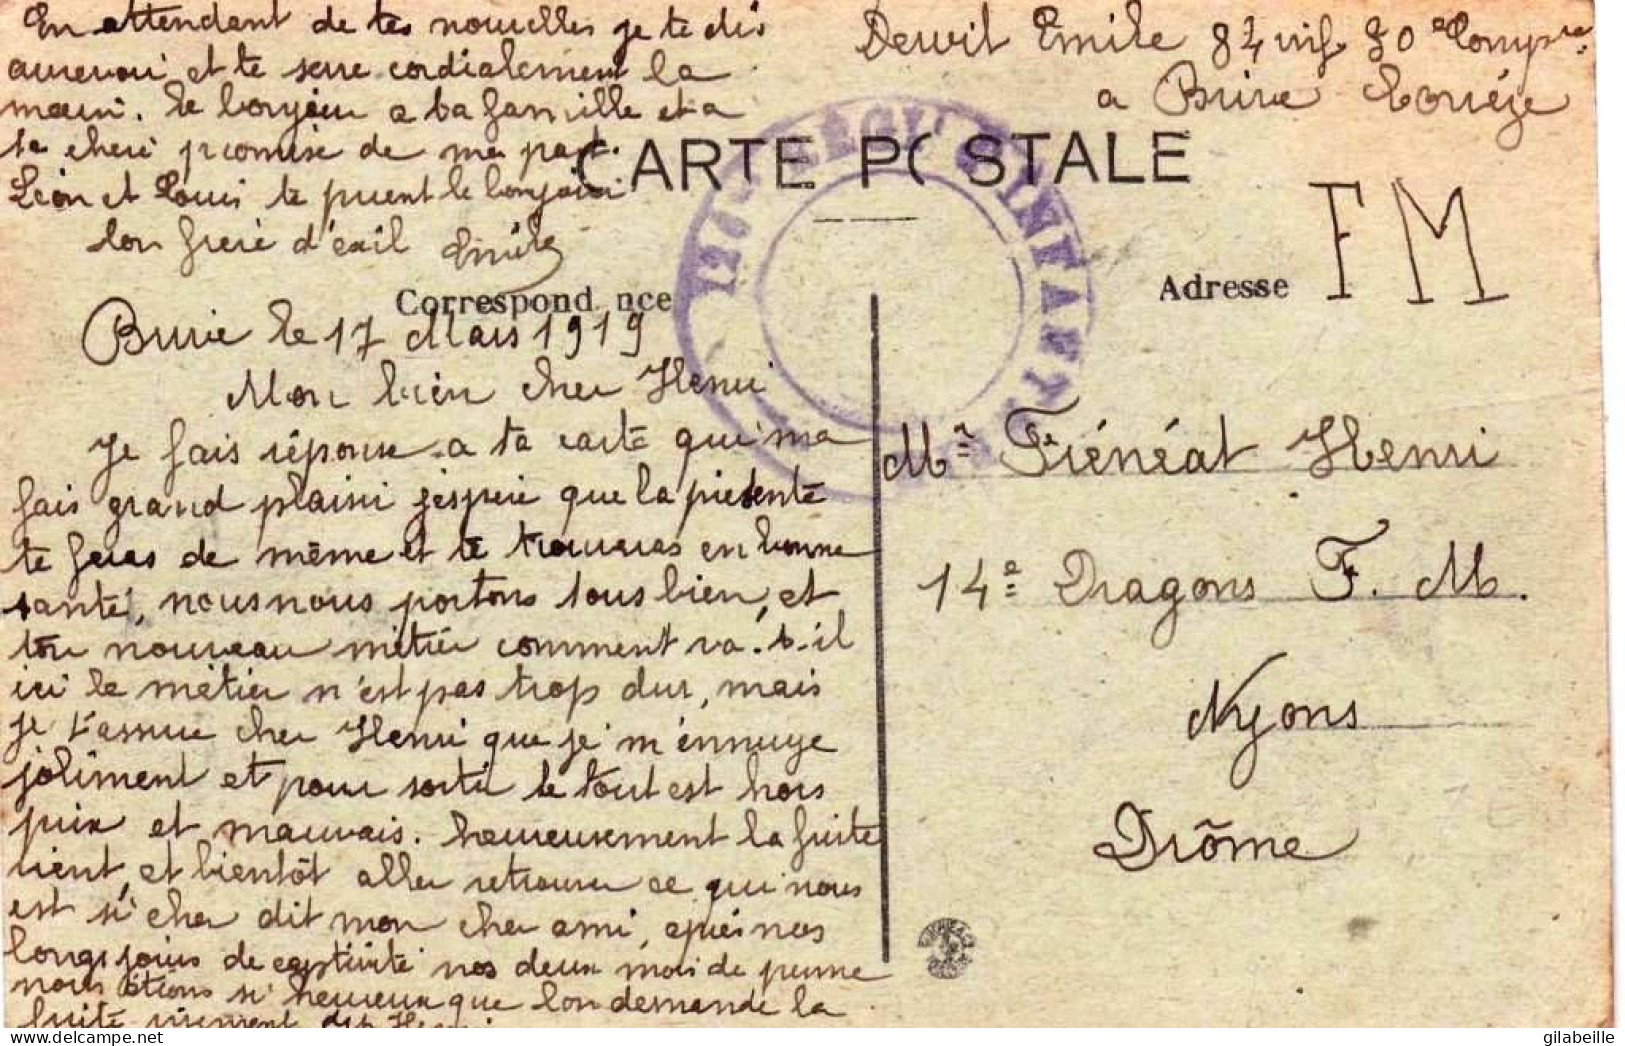 En attendant de tes nouvelles je te dis
aurevoir et te serre cordialement la
main. le bonjour a ta famille et a
ta cheri promise de ma part.
Léon et Louis te prient le bonjour
ton frere d'exil Emile
Dewit Emile 84 inf. 30e Comp
a Brive Corrèze
CARTE POSTALE
126 RÉGt D'INFANT
FM
Correspond nce
Adresse
Brive le 17 Mars 1919
Mon bien cher Henri
Je fais réponse a ta carte qui ma
fais grand plaisir j'espere que la présente
te feras de même et te trouveras en bonne
santé, nous nous portons tous bien, et
ton nouveau métier comment va-t-il
ici le métier n'est pas trop dur, mais
je t'assure cher Henri que je m'ennuye
joliment et pour sortir le tout est hors
prix et mauvais. heureusement la fuite
vient, et bientôt aller retrouver ce qui nous
est si cher dit mon cher ami, après nos
longs jours de captivité nos deux mois de perme
nous étions si heureux que l'on demande la
fuite vivement dis Henri
Mr Frénéat Henri
14e Dragons F. M.
Nyons
Drôme
gilabeille